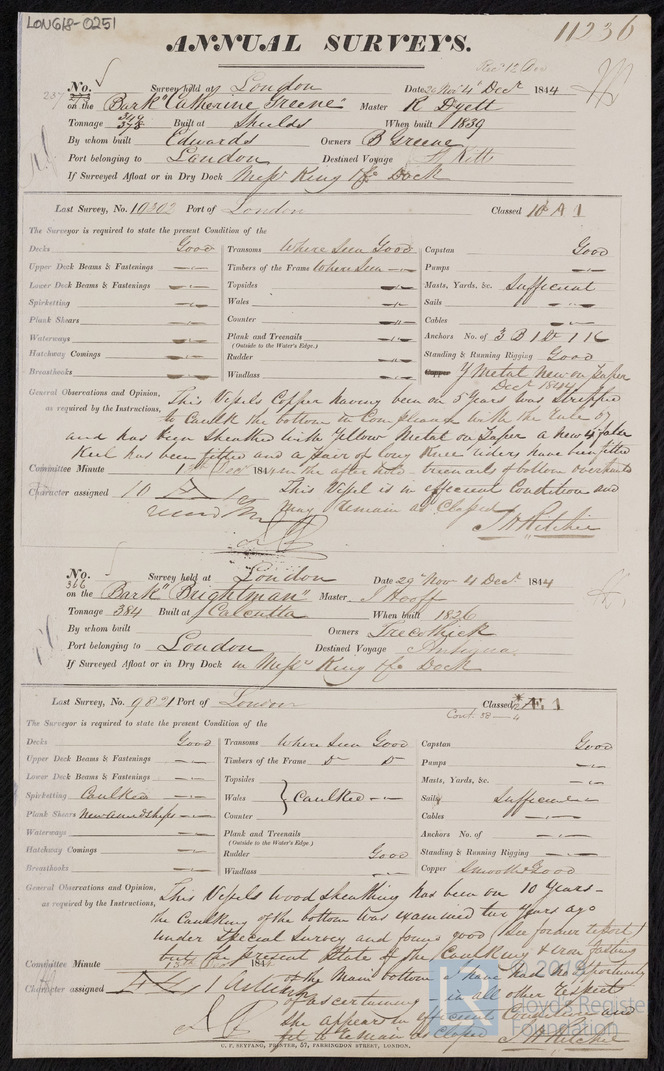 LON618-0251
11236
ANNUAL SURVEYS.
Recd 12 Dec
No. 237 Survey held at London Date 26 Novr 4 Decr 1844
on the Bark "Catherine Greene" Master R Dyett
Tonnage 378 Built at Shields When built 1839
By whom built Edwards Owners B Greene
Port belonging to London Destined Voyage St Kitts
If Surveyed Afloat or in Dry Dock Messrs King & Co Dock
Last Survey, No. 10302 Port of London Classed 10 A 1
The Surveyor is required to state the present Condition of the
Decks Good Transoms Where Seen Good Capstan Good
Upper Deck Beams & Fastenings Timbers of the Frame Where Seen Pumps
Lower Deck Beams & Fastenings Topsides Masts, Yards, &c. Sufficient
Spirketting Wales Sails
Plank Shears Counter Cables
Waterways Plank and Treenails Anchors No. of 3 B 1 St 1 K
(Outside to the Water's Edge.)
Hatchway Comings Rudder Standing & Running Rigging Good
Breasthooks Windlass Copper Y Metal New on Paper
Decr 1844
General Observations and Opinion, This Vessels Copper having been on 5 Years was stripped
as required by the Instructions, to Caulk the bottom in Compliance with the Rule 67
and has been Sheathed with Yellow Metal on Paper a new false
Keel has been fitted and a pair of long Knee riders have been fitted
Committee Minute 13th Decr 1844 in the after hold treenails of bottom overhauled
Character assigned 10 A 1 This Vessel is in efficient Condition and
may remain as Classed
J H Ritchie
No. 366 Survey held at London Date 29 Nov 4 Decr 1844
on the Bark "Brightman" Master J Hooff
Tonnage 384 Built at Calcutta When built 1826
By whom built Owners Trecothick
Port belonging to London Destined Voyage Antigua
If Surveyed Afloat or in Dry Dock in Messrs King & Co Dock
Last Survey, No. 9821 Port of London Classed Æ 1
Cont. 38 — 4
The Surveyor is required to state the present Condition of the
Decks Good Transoms Where Seen Good Capstan Good
Upper Deck Beams & Fastenings Timbers of the Frame Do Do Pumps
Lower Deck Beams & Fastenings Topsides Masts, Yards, &c.
Spirketting Caulked Wales Caulked Sails Sufficient
Plank Shears New amidships Counter Cables
Waterways Plank and Treenails Anchors No. of
(Outside to the Water's Edge.)
Hatchway Comings Rudder Good Standing & Running Rigging
Breasthooks Windlass Copper Smooth & Good
General Observations and Opinion, This Vessels Wood Sheathing has been on 10 Years -
as required by the Instructions, the Caulking of the bottom was examined two Years ago
under Special Survey and found good (See former report)
but the present State of the Caulking & iron fastening
Committee Minute 13th Decr 1844 of the Main bottom I have had no opportunity
Character assigned Æ 1 of ascertaining in all other respects
she appears in efficient Condition and
fit to remain as Classed J H Ritchie
C. F. SEYFANG, PRINTER, 57, FARRINGDON STREET, LONDON.
© 2019
Lloyd's Register
Foundation